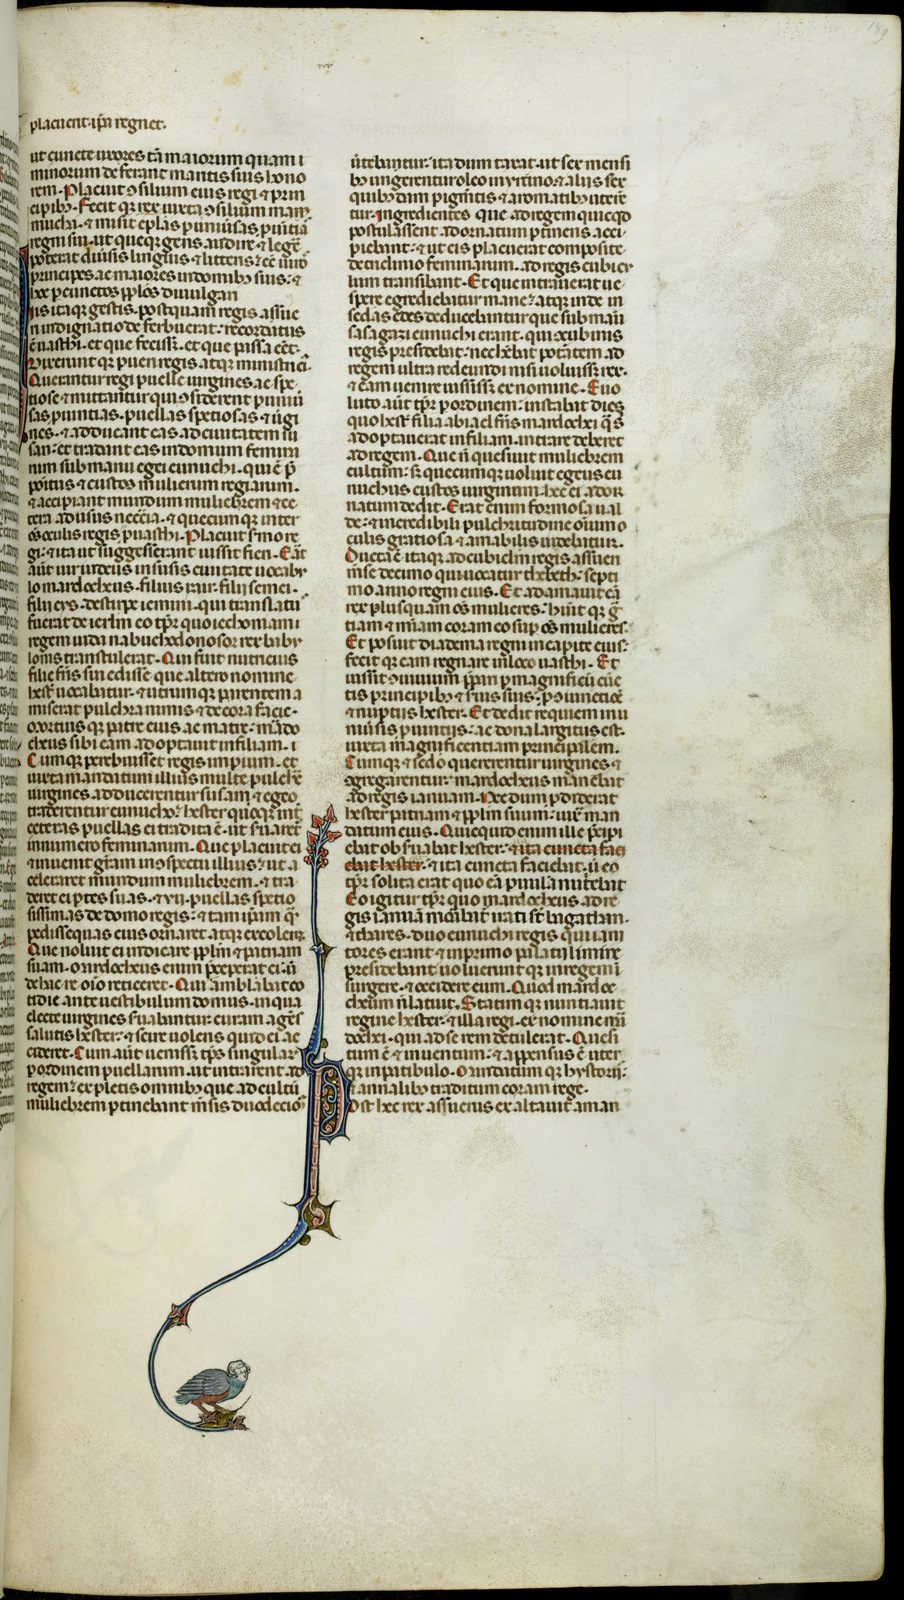 placuerit ip̄a regnet.
ut cuncte uxores tā maiorum quam i
minorum deferant maritis suis hono
rem. Placuit ɔsilium eius regi & prin
cipibꝰ. Fecit qꝫ rex iuxta ɔsilium mam
muchā. & misit ep̄las p uniūsas puītia
regni sui. ut queqꝫ gens audire & legē
poterat diūsis linguis & litteris: eē uiro
principes ac maiores in domibꝰ suis: &
hec p cunctos pp̄los diuulgari
iis itaqꝫ gestis. postquam regis assue
ri indignatio deferbuerat: recordatus
ē uasthi. et que fecisset. et que passa eēt.
Dixerunt qꝫ pueri regis atqꝫ ministri ei.
Querantur regi puelle uirgines ac spe
tiose & mittantur qui ɔsiderent p uniū
sas puintias. puellas spetiosas & uigi
nes. & adducant eas ad ciuitatem su
san: et tradant eas in domum femini
num sub manu egei eunuchi. qui ē p̄
positus & custos mulierum regiarum.
& accipiant mundum muliebrem & ce
tera ad usus necc̄ia. & quecumqꝫ inter
oēs oculis regis p uasthi. Placuit s̄mo re
gi: & ita ut suggesserant iussit fieri. Erāt
aūt uir iudeus in susis ciuitate uocabu
lo mardocheus. filius iair. filii semei.
filii cys. de stirpe iemini. qui translatꝰ
fuerat de ierl̄m eo tp̄r quo iechoniam
regem iuda nabuchodonosor rex baby
lonis transtulerat. Qui fuit nutricius
filie fr̄is sui edisse que altero nomine
hest̄ uocabatur. & utrumqꝫ parentem a
miserat pulchra nimis & decora facie.
Mortuis qꝫ patre eius ac matre: mardo
cheus sibi eam adoptauit in filiam.
Cumqꝫ pcrebuisset regis impium. et
iuxta mandatum illius multe pulchre
uirgines adducerentur susam & egeo
traderentur eunucho: hester quoqꝫ int̄
ceteras puellas ei tradita ē. ut s̄uaret̄
in numero feminarum. Que placuit ei
& inuenit gr̄am in ɔspectu illius: ut a
celeraret mundum muliebrem. & tra
deret ei ptes suas. & vii. puellas spetio
sissimas de domo regis: & tam ip̄am qꝫ
pedissequas eius ornaret atqꝫ excoleret
Que noluit ei indicare pp̄lm & patriam
suam. Mardocheus enim p̄ceperat ei: ut
de hac re oīo reticeret. Qui āmblabat co
tidie ante uestibulum domus. in qua
electe uirgines s̄uabantur: curam agēs
salutis hester: & scire uolens quid ei ac
cideret. Cum aūt uenisset tp̄s singularꝫ
p ordinem puellarum. ut intrarent ad
regem: expletis omnibꝰ que ad cultū
muliebrem ptinebant m̄sis duodecimꝰ
ūtebantur: ita dum taxat. ut sex mensi
bꝰ ungerentur oleo myrtino: & aliis sex
quibꝰdam pigm̄tis & aromatibꝰ utere
tur. Ingredientes que ad regem quicqd
postulassent ad ornatum ptinens acci
piebant: & ut eis placuerat composite
de triclinio feminarum. ad regis cubicu
lum transibant. Et que intrauerat ue
spere egrediebatur mane: atqꝫ inde in
sedas edes deducebantur que sub manu
sasagazi eunuchi erant. qui ɔcubinis
regis presidebat: nec hēbat potātem ad
regem ultra redeundi nisi uoluisset rex.
& eam uenire iussisset ex nomine. Euo
luto aūt tp̄r p ordinem: instabat dies
quo hest̄ filia abiael fr̄is mardochei qꝫ s
adoptauerat in filiam. intrare deberet
ad regem. Que n̄ quesiuit muliebrem
cultum: sꝫ quecumqꝫ uoluit egeus eu
nuchus custos uirginum. hec ei ad or
natum dedit. Erat enim formosa ual
de: & incredibili pulchritudine oīum o
culis gratiosa & amabilis uidebatur.
Ducta ē itaqꝫ ad cubiclm regis assueri
m̄se decimo qui uocatur thebeth: septi
mo anno regni eius. Et adamauit eā
rex plusquam oēs mulieres: hūit qꝫ gꝫ
tiam & miam coram eo sup oēs mulieres.
Et posuit diadema regni in capite eius:
fecit qꝫ eam regnare in loco uasthi. Et
iussit ɔuiuium p̄pari p magnificū cūc
tis principibꝰ & s̄uis suis: p ɔiunctiōe
& nuptiis hester. Et dedit requiem uni
uersis puintiis: ac dona largitus est.
iuxta magnificentiam principalem.
Cumqꝫ & sedo quererentur uirgines &
ɔgregarentur: mardocheus manebat
ad regis ianuam. Nec dum pdiderat
hester patriam & pp̄lm suum: iux̄ man
datum eius. Quicquid enim ille p̄cipi
ebat obs̄uabat hester: & ita cuncta faci
ebat hester. & ita cuncta faciebat. ut eo
tp̄r solita erat quo eā paruulā nutriebat
Eo igitur tp̄r quo mardocheus ad re
gis ianuā morabat̄ irati st̄ bagathan.
& thares. duo eunuchi regis qui iani
tores erant & in primo palatii limine
presidebant: uoluerunt qꝫ in regem ī
surgere. & occidere eum. Quod mardo
cheum n̄ latuit. Statim qꝫ nuntiauit
regine hester: & illa regi. ex nomine mar
dochei. qui ad se rem detulerat. Quesi
tum ē & inuentum: & appensus ē uter
qꝫ in patibulo. Mandatum qꝫ hystoriis
& annalibꝰ traditum coram rege.
Post hec rex assuerus exaltauit aman